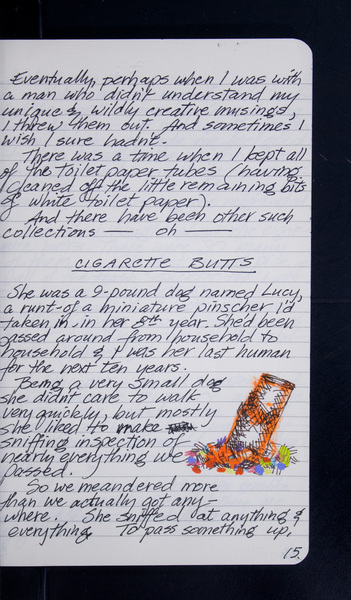 Eventually, perhaps when I was with
a man who didn't understand my
unique & wildly creative musings,
I threw them out. And sometimes I
wish I sure hadn't.
There was a time when I kept all
of the toilet paper tubes (having
cleaned off the little remaining bits
of white toilet paper).
And there have been other such
collections — oh —
CIGARETTE BUTTS
She was a 9-pound dog named Lucy,
a runt-of a miniature pinscher I'd
taken in, in her 8th year. She'd been
passed around from household to
household & I was her last human
for the next ten years.
Being a very small dog
she didn't care to walk
very quickly, but mostly
she liked to make
sniffing inspection of
nearly everything we
passed.
So we meandered more
than we actually got any-
where. She sniffed at anything &
everything. To pass something up,
15.